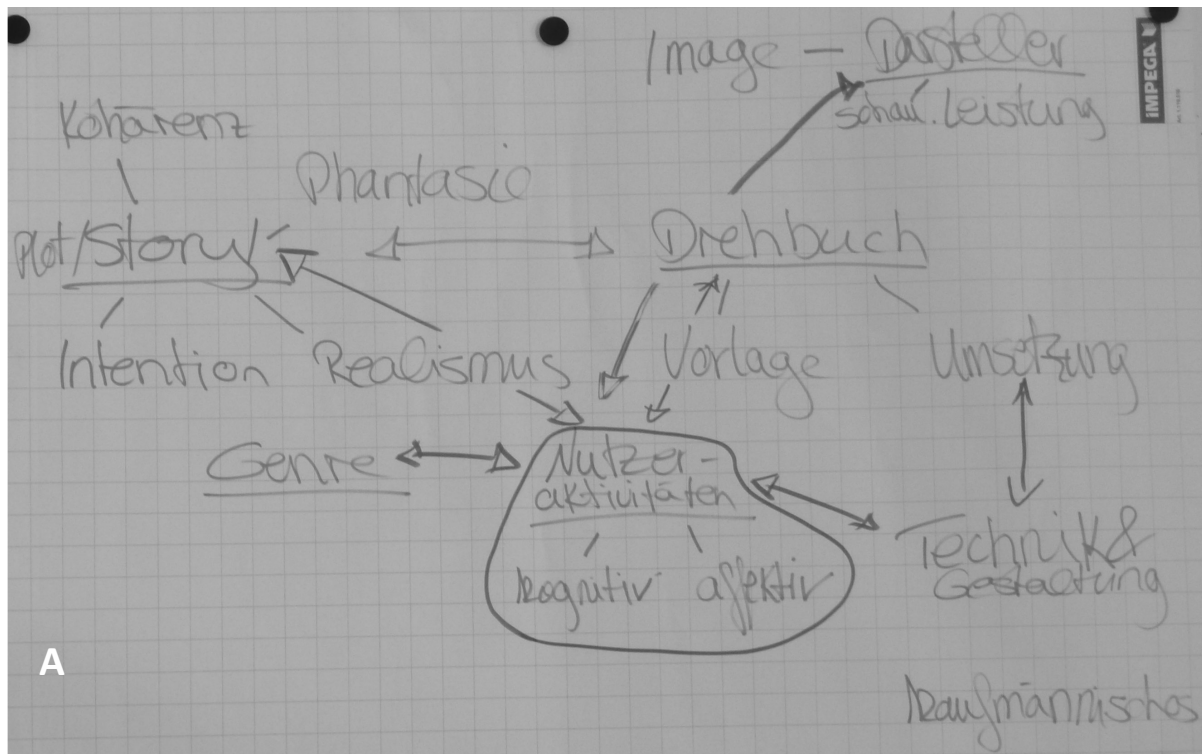 Image — Darsteller
schau. Leistung
IMPEGA
Kohärenz
Phantasie
Plot/Story
Drehbuch
Intention
Realismus
Vorlage
Umsetzung
Genre
Nutzer-
aktivitäten
kognitiv affektiv
Technik &
Gestaltung
A
Kaufmännisches